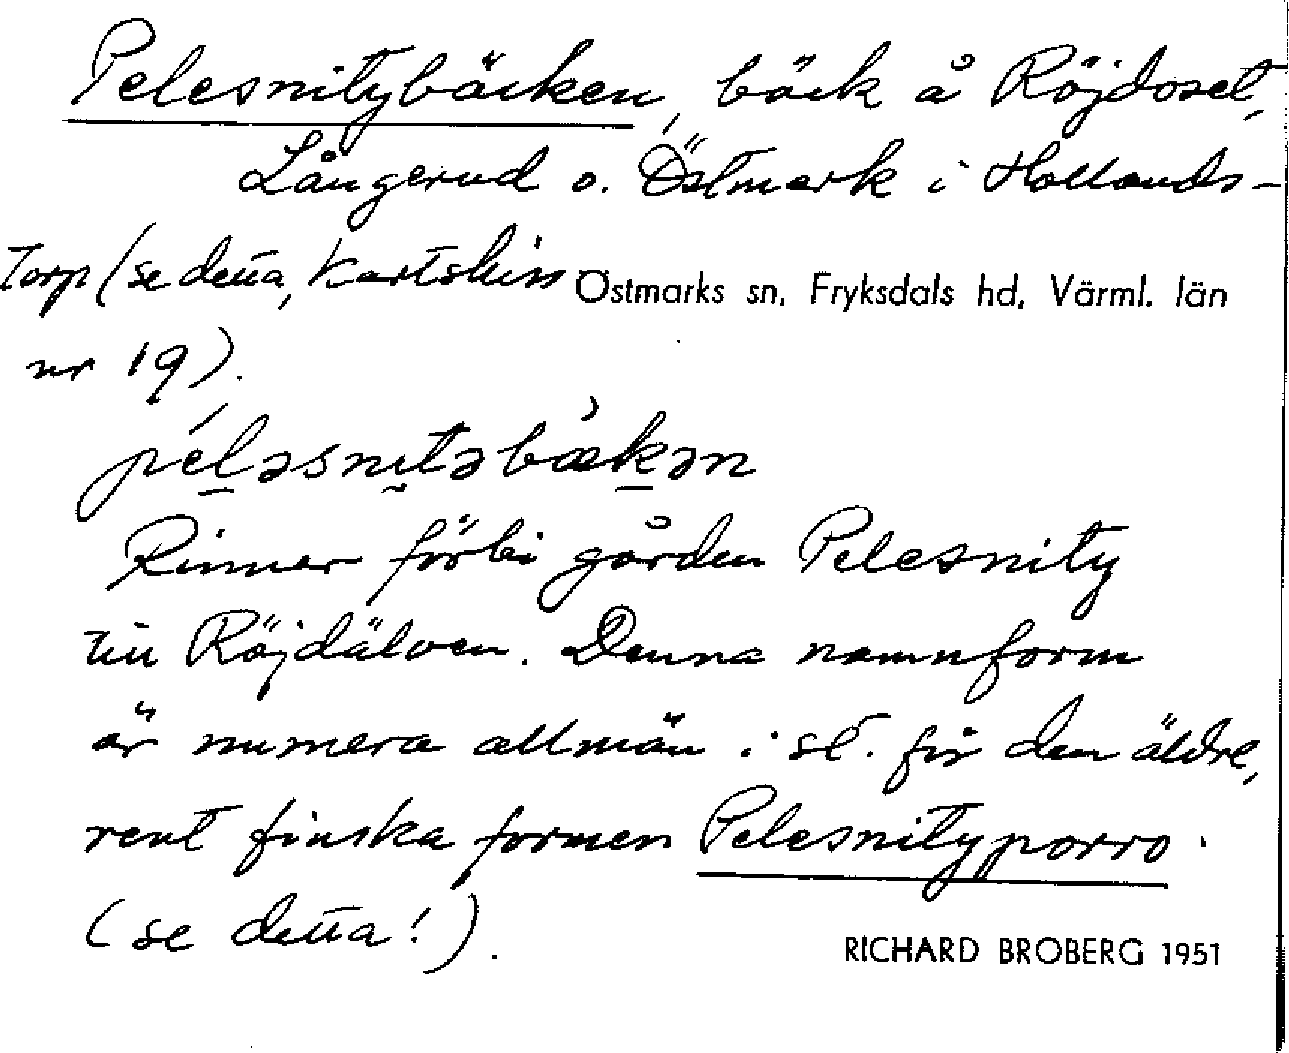 Pelesnitybäcken, bäck å Röjdoset,
Långerud o. Östmark i Hollands-
torp (se detta, kartskiss
Östmarks sn, Fryksdals hd, Värml. län
nr 19).
péləsnıtəbæ̀kən
Rinner förbi gården Pelesnity
till Röjdälven. Denna namnform
är numera allmän i st. för den äldre,
rent finska formen Pelesnityporro.
(se detta!).
RICHARD BROBERG 1951